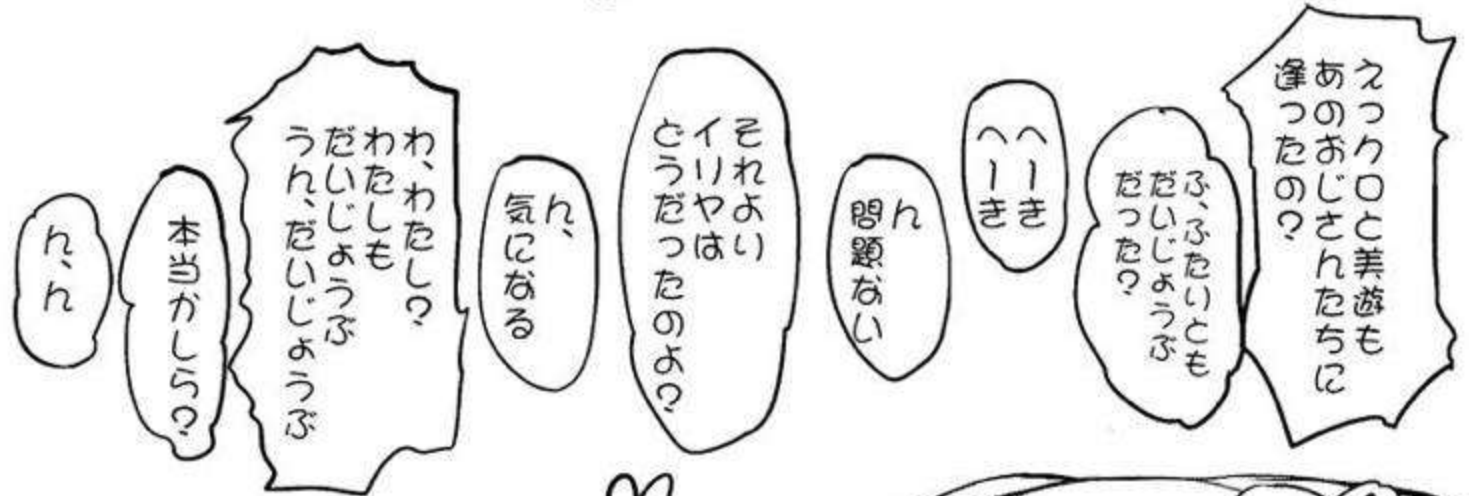 えっクロと美遊も
あのおじさんたちに
逢ったの?
ふ、ふたりとも
だいじょうぶ
だった?
へーき
へーき
ん
問題ない
それより
イリヤは
どうだったのよ?
ん、
気になる
わ、わたし?
わたしも
だいじょうぶ
うん、だいじょうぶ
本当かしら?
ん、ん